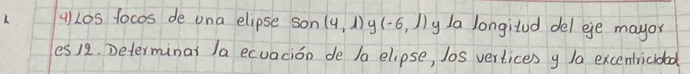 4) Los focos de una elipse son (4, 1) y (-6, 1) y la longitud del eje mayor
es 12. Determinar la ecuación de la elipse, los vertices y la excentricidad